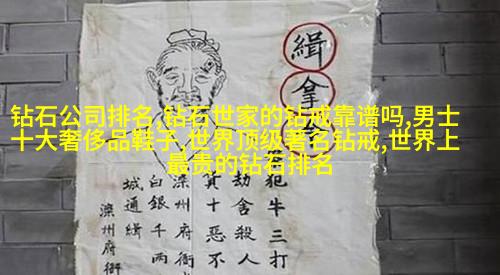 钻石公司排名,钻石世家的钻戒靠谱吗,男士
十大奢侈品鞋子,世界顶级著名钻戒,世界上
最贵的钻石排名
緝
拿
犯牛三打
劫舍殺人
其十惡不
滦州府衙
白銀千两
城通緝
滦州府衙